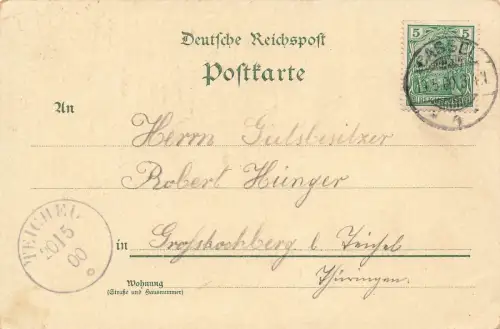 Deutsche Reichspost
Postkarte
5 5
CASSEL
An
Herrn Gutsbesitzer
Robert Hünger
TEICHEL
20 5
00
in Großkochberg b. Teichel
Thüringen.
Wohnung
(Straße und Hausnummer)